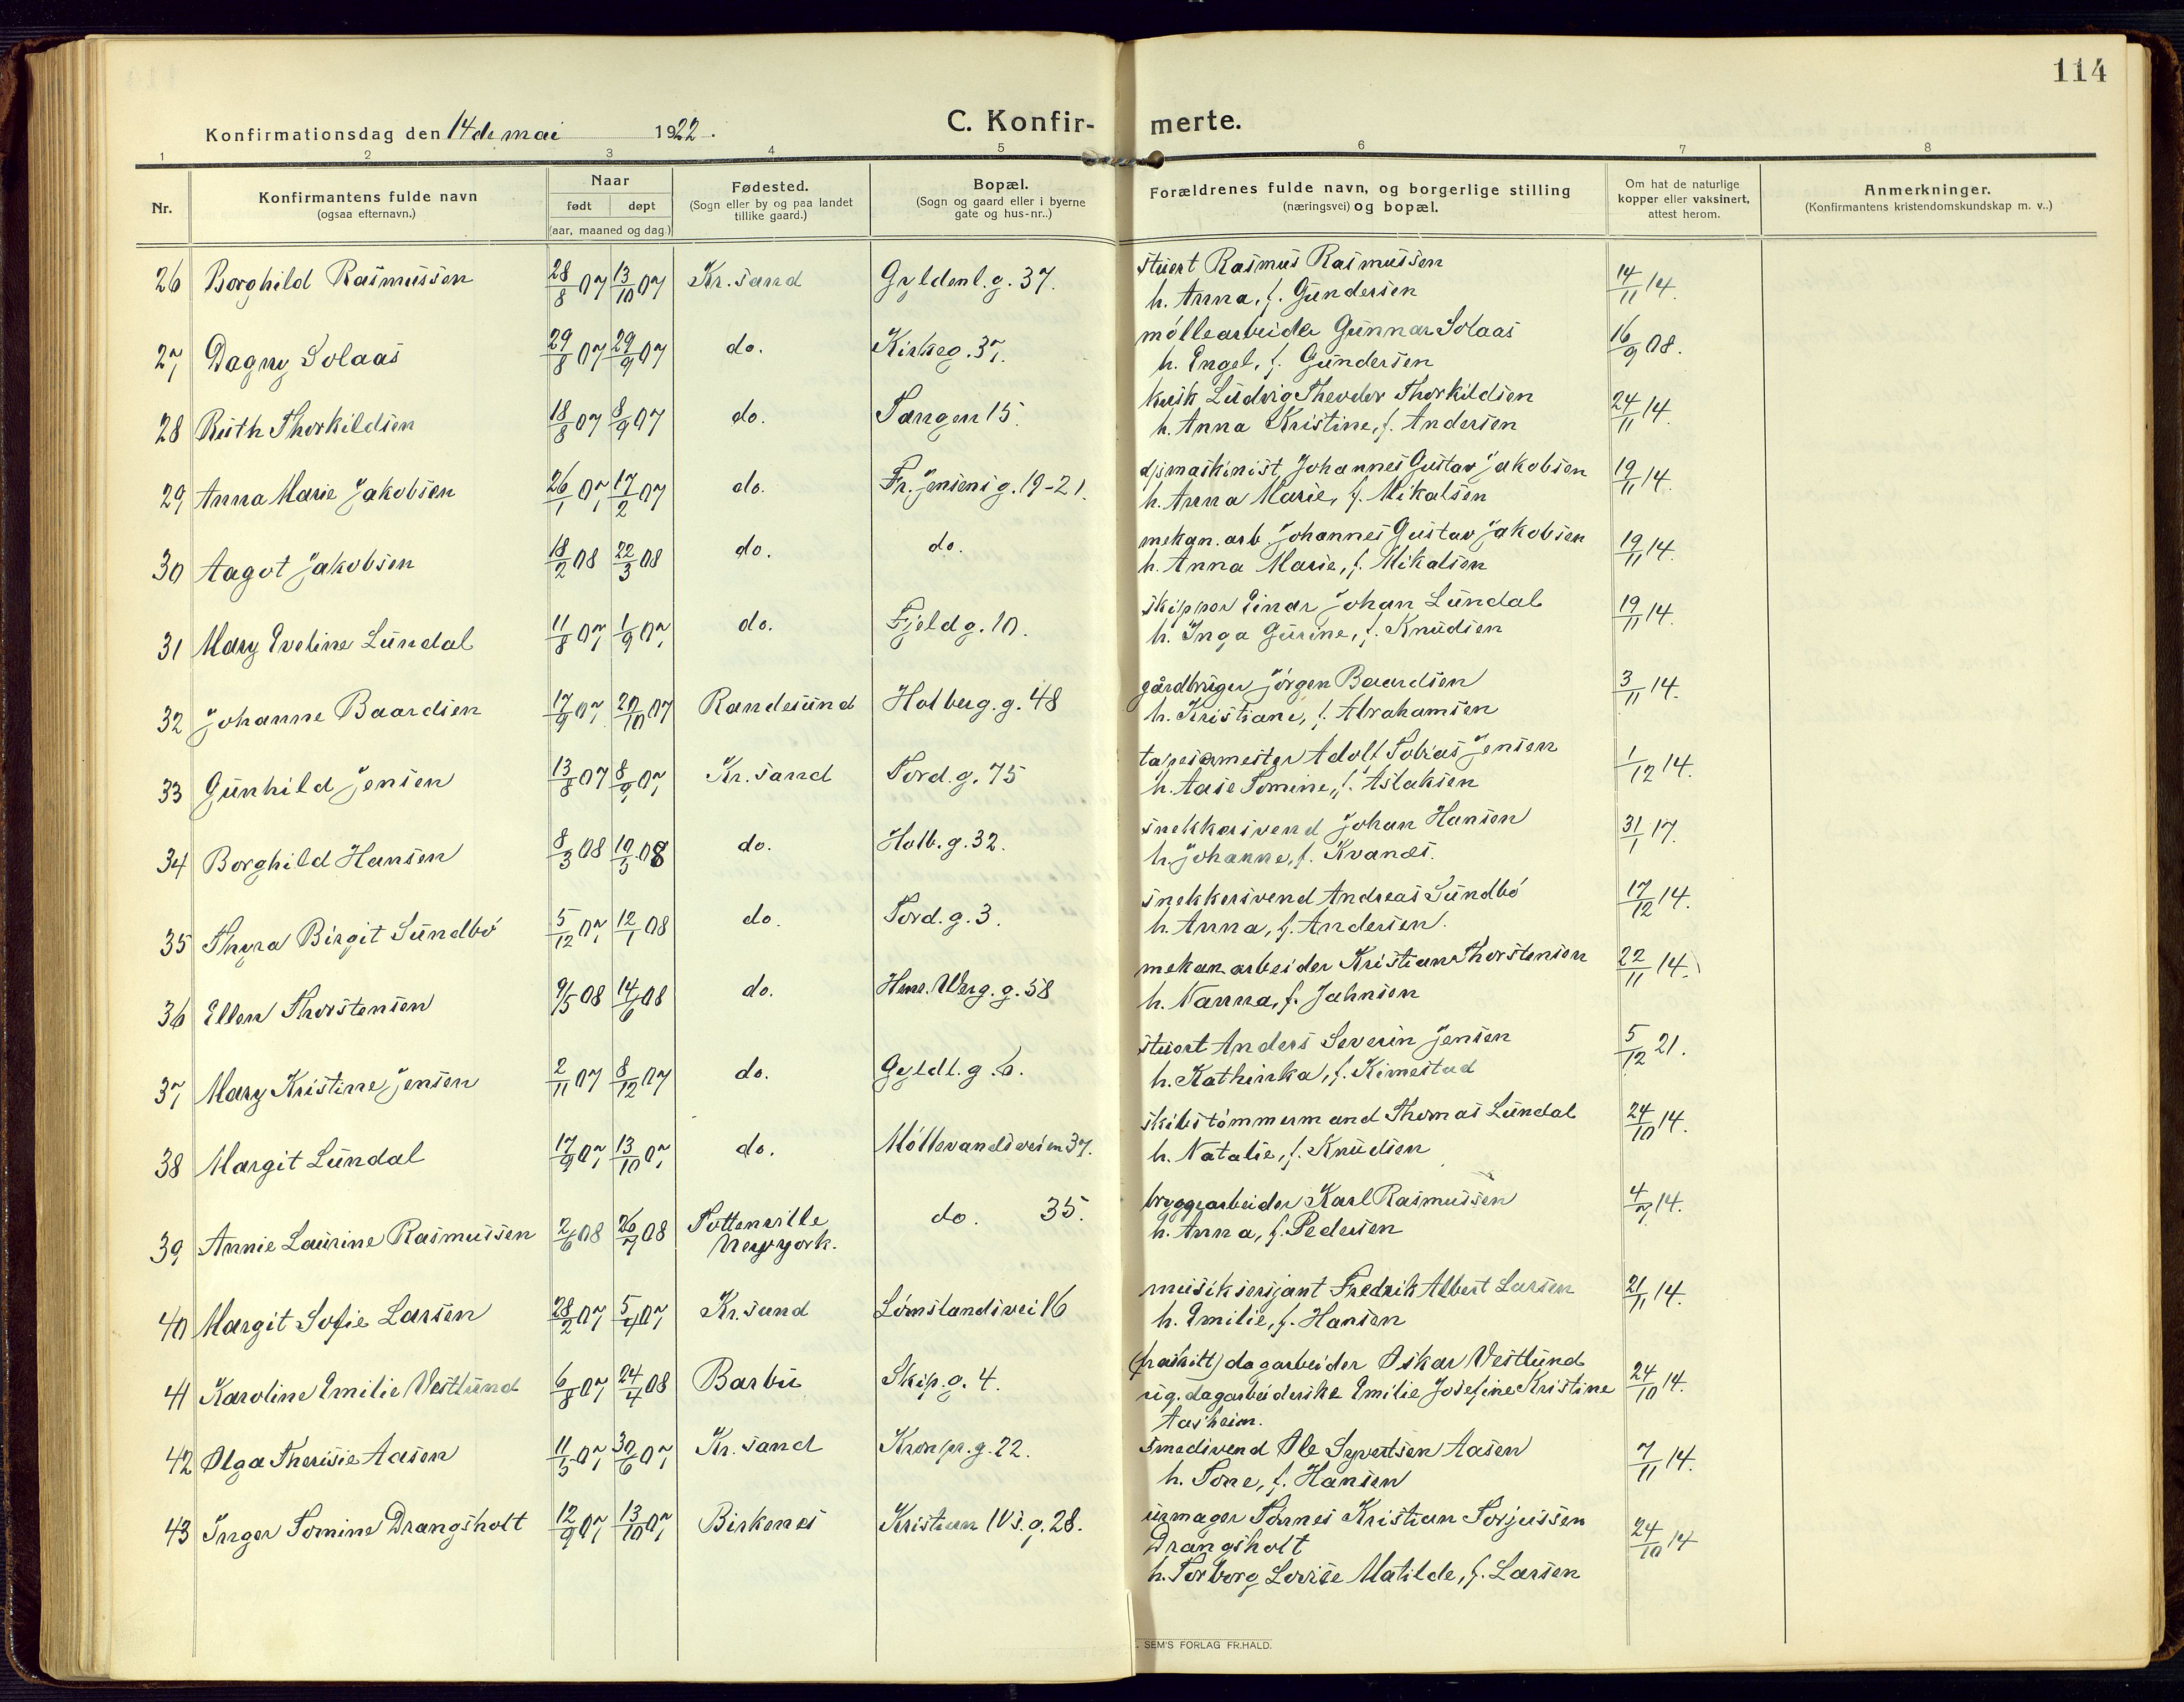 114
Konfirmationsdag den 14de mai 1922.
C. Konfir- merte.
1 2 3 4 5 6 7 8
Nr.
Konfirmantens fulde navn
(ogsaa efternavn.)
Naar
født døpt
(aar, maaned og dag.)
Fødested.
(Sogn eller by og paa landet
tillike gaard.)
Bopæl.
(Sogn og gaard eller i byerne
gate og hus-nr..)
Forældrenes fulde navn, og borgerlige stilling
(næringsvei) og bopæl.
Om hat de naturlige
kopper eller vaksinert,
attest herom.
Anmerkninger.
(Konfirmantens kristendomskundskap m. v..)
26 Borghild Rasmussen 28/8 07 13/10 07 Kr.sand Gyldenl.g. 37. stuert Rasmus Rasmussen 14/11 14.
h. Anna, f. Gundersen
27 Dagny Solaas 29/8 07 29/9 07 do. Kirkeg. 37. möllearbeider Gunnar Solaas 16/9 08.
h. Engel, f. Gundersen
28 Ruth Thorkildsen 18/8 07 8/9 07 do. Tangen 15. kusk Ludvig Theodor Thorkildsen 24/11 14.
h. Anna Kristine, f. Andersen
29 Anna Marie Jakobsen 26/1 07 17/2 07 do. Fr. Jensens g. 19-21. d/s maskinist Johannes Gustav Jakobsen 19/11 14.
h. Anna Marie, f. Mikalsen
30 Aagot Jakobsen 18/2 08 22/3 08 do. do. mekan. arb. Johannes Gustav Jakobsen 19/11 14.
h. Anna Marie, f. Mikalsen
31 Mary Eveline Lundal 11/8 07 1/9 07 do. Fjeldg. 10. skipper Einar Johan Lundal 19/11 14.
h. Inga Gurine, f. Knudsen
32 Johanne Baardsen 17/9 07 20/10 07 Randesund Holberg. g. 48 gårdbruger Jörgen Baardsen 3/11 14.
h. Kristiane, f. Abrahamsen
33 Gunhild Jensen 13/8 07 8/9 07 Kr.sand Tord. g. 75 tapesermester Adolf Tobias Jensen 1/12 14.
h. Aase Tomine, f. Aslaksen
34 Borghild Hansen 8/3 08 10/5 08 do. Holb. g. 32. snekkersvend Johan Hansen 31/1 17.
h. Johanne, f. Kvanes.
35 Thyra Birgit Sundbö 5/12 07 12/1 08 do. Tord. g. 3. snekkersvend Andreas Sundbö 17/12 14.
h. Anna, f. Andersen.
36 Ellen Thorstensen 9/5 08 14/6 08 do. Henr. Werg. g. 58 mekan arbeider Kristian Thorstensen 22/11 14.
h. Nanna, f. Jahnsen
37 Mary Kristine Jensen 2/11 07 8/12 07 do. Gyldl. g. 6. stuert Anders Severin Jensen 5/12 21.
h. Kathinka, f. Kimestad
38 Margit Lundal 17/9 07 13/10 07 do. Möllevandsveien 37. skibstömmermand Thomas Lundal 24/10 14.
h. Natalie, f. Knudsen
39 Annie Laurine Rasmussen 2/6 08 26/7 08 Tottenville do. 35. bryggearbeider Karl Rasmussen 4/7 14.
Newyork. h. Anna, f. Pedersen
40 Margit Sofie Larsen 28/2 07 5/4 07 Kr.sand Lömslandsvei 16 musiksersjant Fredrik Albert Larsen 21/11 14.
h. Emilie, f. Hansen
41 Karoline Emilie Vestlund 6/8 07 24/4 08 Barbu Skip. g. 4. (fraskilt) dagarbeider Oskar Vestlund 24/10 14.
og dagarbeiderske Emilie Josefine Kristine
Aasheim.
42 Olga Therisie Aasen 11/5 07 30/6 07 Kr.sand Kronpr. g. 22. smedsvend Ole Syvertsen Aasen 7/11 14.
h. Tone, f. Hansen
43 Inger Tomine Drangsholt 12/9 07 13/10 07 Birkenes Kristian IVs. g. 28. urmager Tönnes Kristian Torjussen 24/10 14
Drangsholt
h. Torborg Lovise Matilde, f. Larsen
. SEM'S FORLAG FR.HALD.